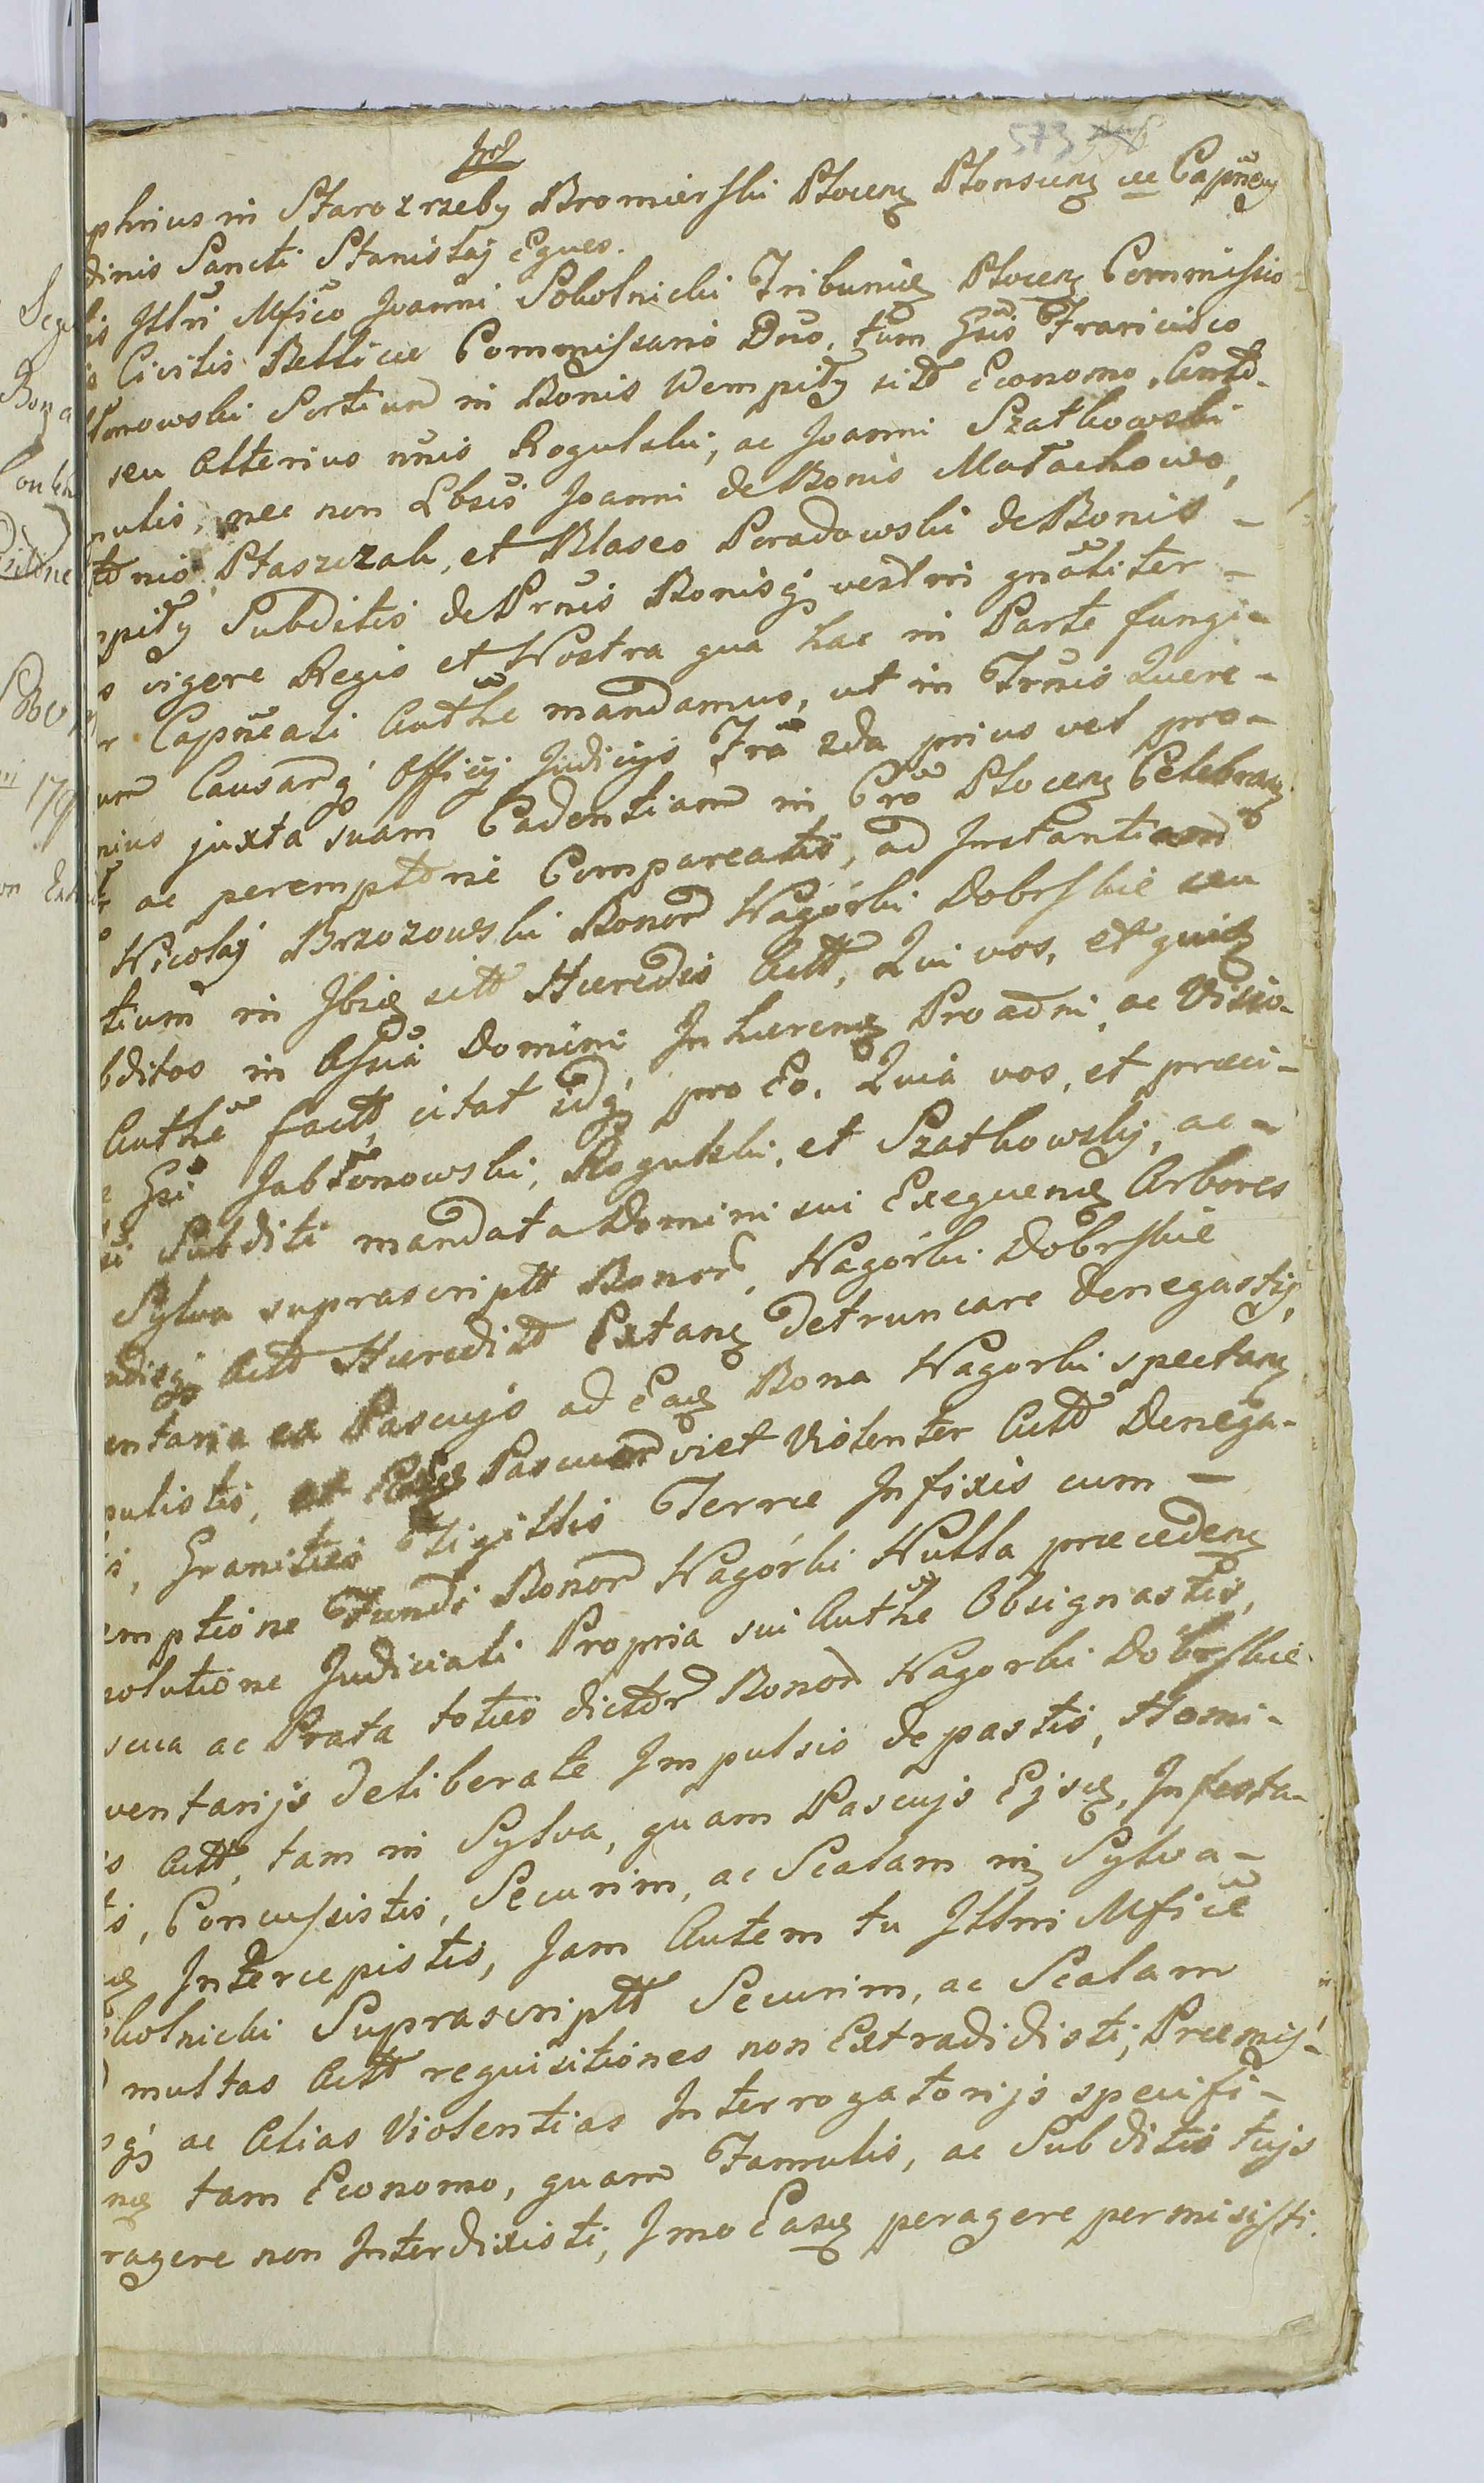 573
phrius in Starozrzeby Bromierski Plocen Plonscen ee Capney
dinis Sancti Stanislaj Eques.
is Illri Mfico Joanni Sokolnicki Tribunid Plocen Commissio-
s Civilis Bellicae Commissario Dno, tum Gsis Francisco
lonowski Sortium in Bonis Wempiły sitt Economo, Antt-
seu Alterius nnis Rogulski, ac Joanni Szatkowski
mulis, nec non Lbsis Joanni de Bonis Małachowo,
ttnis, Ptaszczak, et Blaseo Poradowski de Bonis -
mpiły Subditis de Prnis Bonisq vestri gnaliter -
s vigere Regis et Nostra qua hac in Parte fungi-
r Capneali Authe mandamus, ut in Trnis Quere-
um Causarq Officij Judicijs Fra 2da prius vel pro-
nius juxta suam Cadentiam in Cro Plocen Celebran
ac peremptorie Compareatis, ad Instantiam
Nicolaj Brzozowski Bonor Nagórki Dobrskie seu
tium in Ibid sitt Haeredis Actt, Qui vos, et quid
bditos in Assia Domini Inhaeren Proadni, ac Visio-
Authe factt citat idq pro Eo. Quia vos, et praeci-
e Gsi Jabłonowski, Rogulski, et Szatkowskij, ac -
si Subditi mandata Domini sui Exequend Arbores
Sylva suprascriptt Bonor, Nagórki Dobrskie
ndisq Actt Haeredist Extan detruncare denegastis,
entaria ex Pascuijs ad Ead Bona Nagorki spectan
pulistis, et Pascuor viet Violenter Actt Denega-
s, Granities Tigillis Terrae Infixis cum -
emptione Fundi Bonor Nagórki Nulla praeceden
solutione Judiciali Propria sui Authe Obsignastis,
scua ac Prata toties dictor Bonor Nagorki Dobrskie
ventarijs deliberate Impulsis depastis, Homi-
s Actt, tam in Sylva, quam Pascuijs Ejsd, Infesta-
ts, Concussistis, Securim, ac Scalam in Sylva -
Intercepistis, Jam Autem tu Illri Mfice
okolnicki Suprascriptt Securim, ac Scalam
multas Actt requisitiones non Extradidisti, Praemis-
q ac Alias Violentias Interrogatorijs specifi-
nd tam Economo, quam Famulis, ac Subditis tujs
ragere non Interdixisti, Imo Easd peragere permisisti.